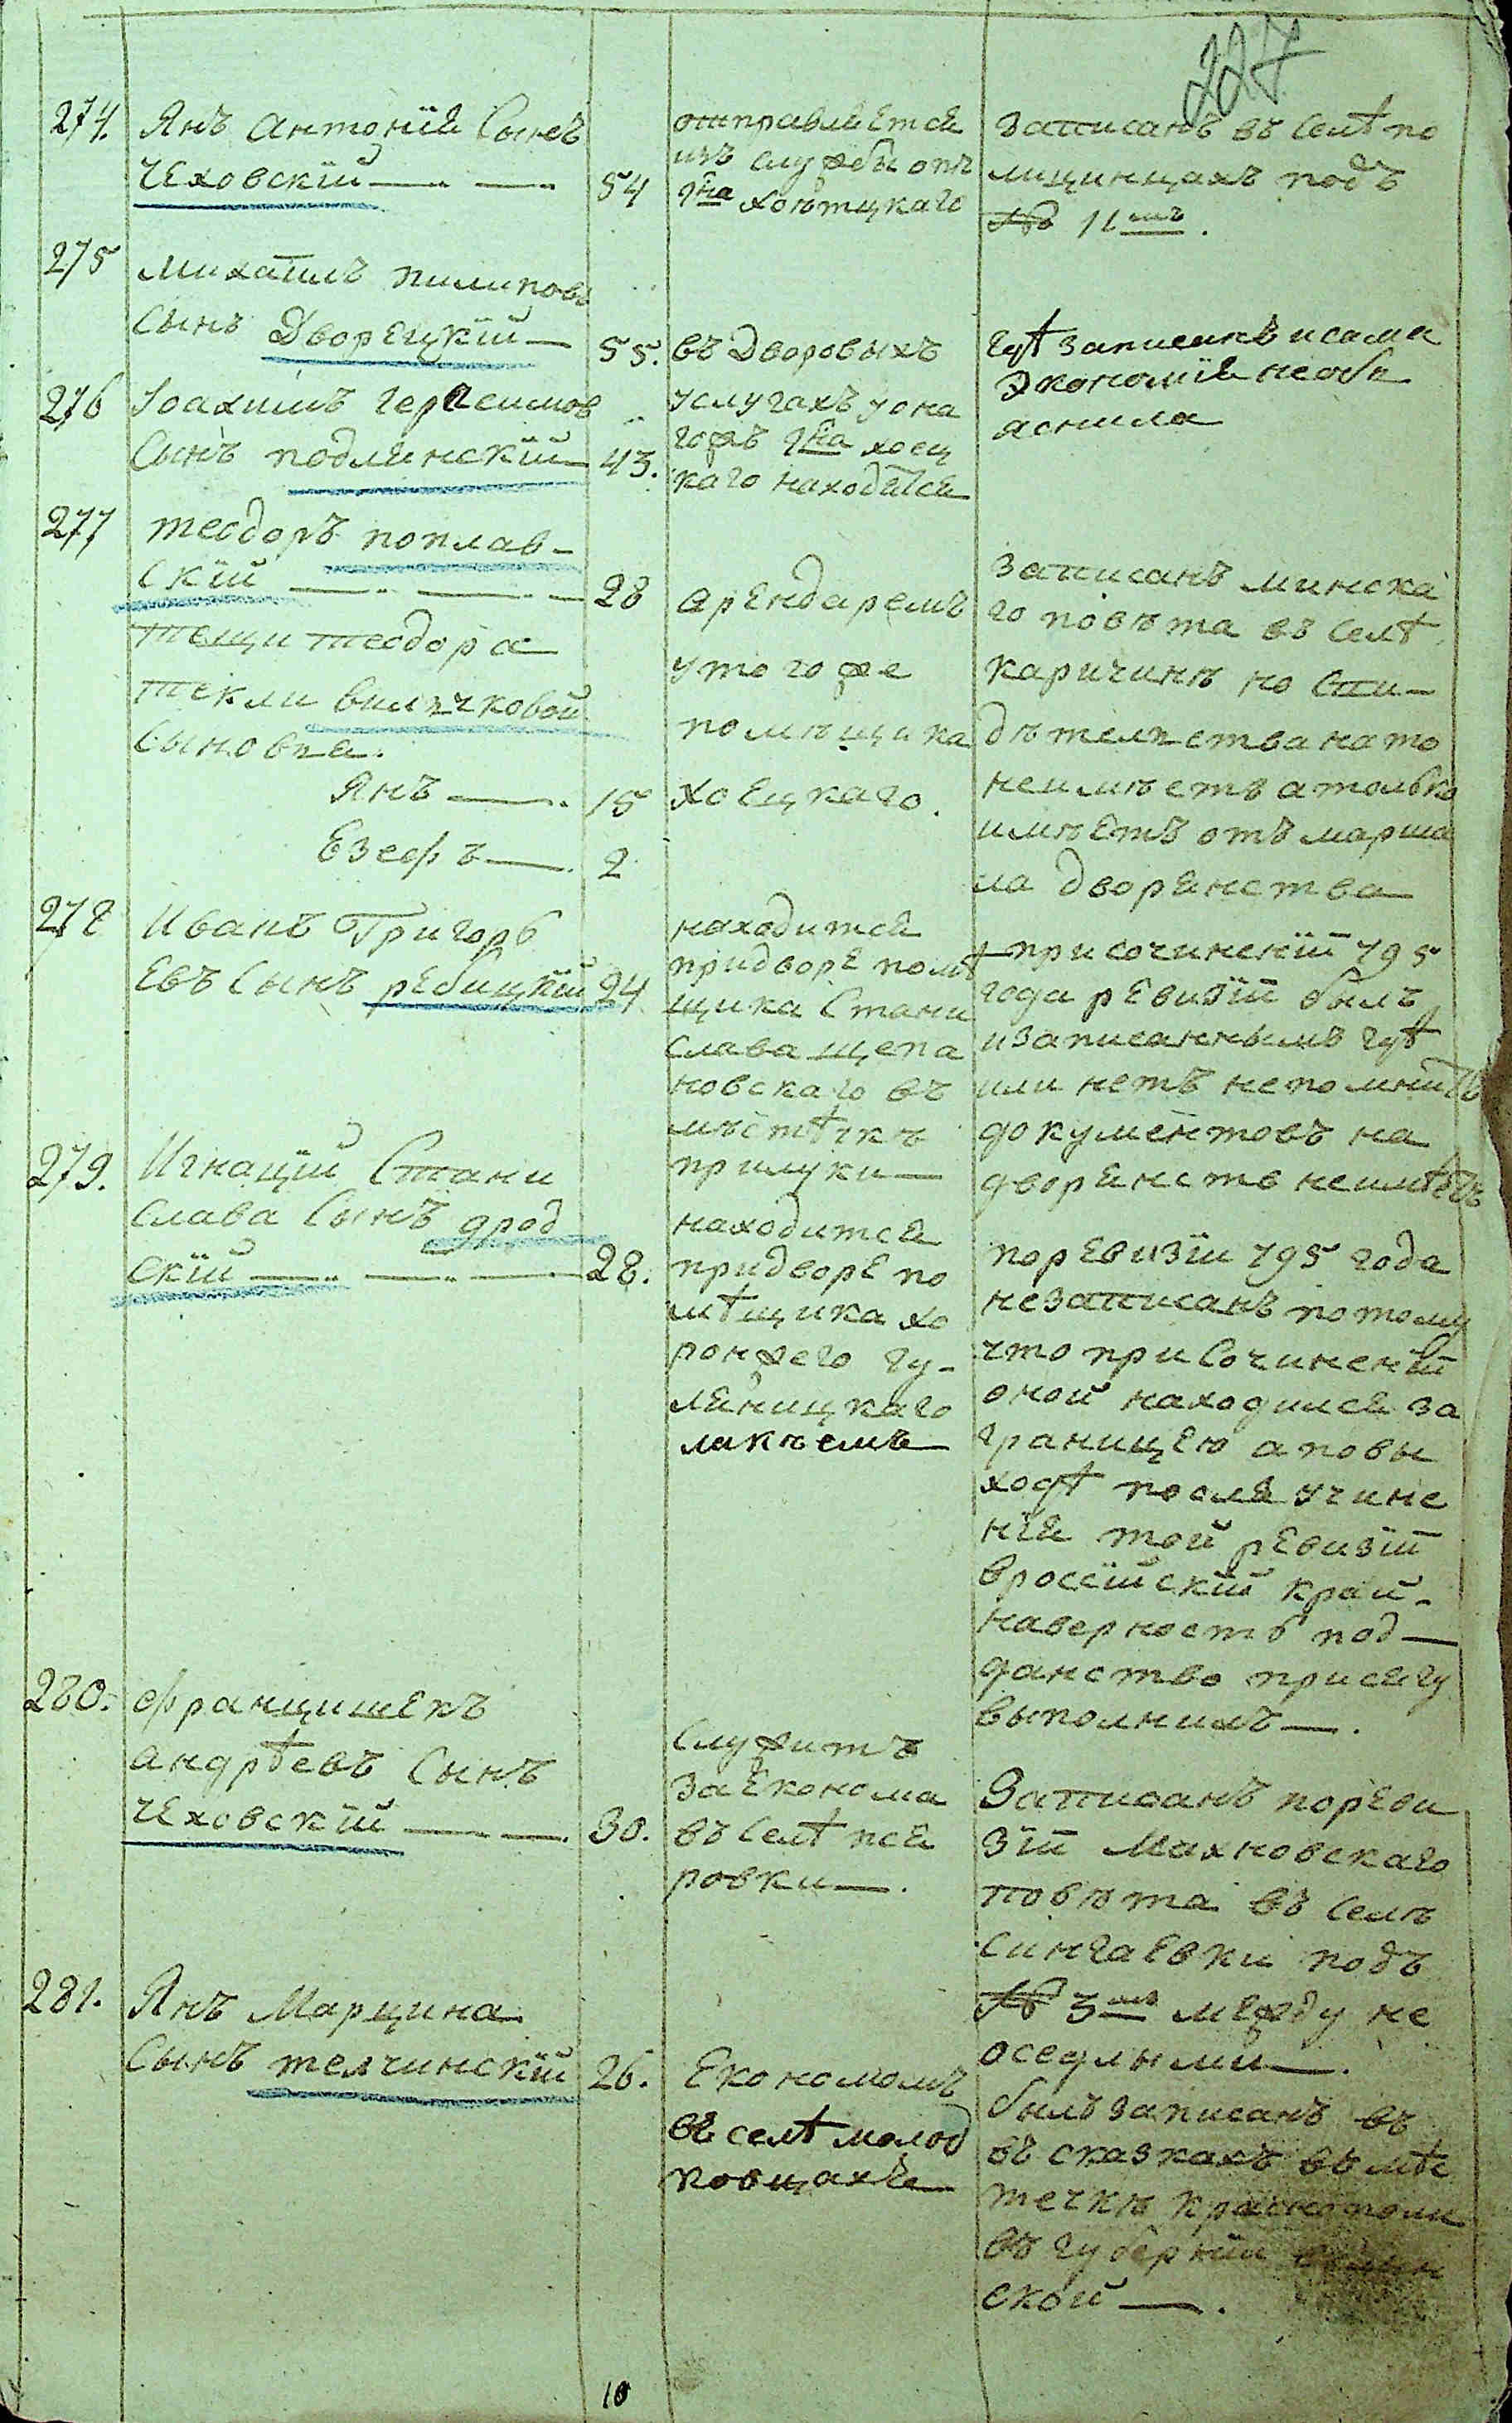 227
274.
Янъ Антоній Сынъ
Чеховскій
54
отправляется
изъ службы отъ
Хоѣтцкаго
Записанъ въ Селѣ по
лицинцахъ подъ
№ 11мъ.
275
Михаилъ пилиповъ
Сынъ Дворецкій
55.
въ Дворовыхъ
гдѣ записанъ и сама
Экономія необъ
яснила
276
Іоахимъ Герасимов
Сынъ подлинскій
43.
услугахъ у она
гожъ Гна хоец
каго находятся
277
теодоръ поплав-
скій
28
Арендаремъ
у того же
помѣщика
Хоецкаго.
тещи теодора
текли вилѣчковой
Сыновѣя.
Янъ
15
Езефъ
2
Записанъ минска
го повѣта въ Селѣ
каричинѣ но Сви-
дѣтелѣства на то
не имѣетъ а только
имѣетъ отъ марша
ла дворянства
278
Иванъ Григорь
евъ Сынъ ребицкій
24
находится
придворе помѣ
щика Стани
слава щепа
новскаго въ
мѣстѣчкѣ
прилуки
при сочиненіи 795
года ревизіи былъ
и записаннымъ гдѣ
или нетъ непомнитъ
документовъ на
дворянство неимѣетъ
279.
Игнацій Стани
слава Сынъ дрод
скій
28.
находится
придворе по
мѣщика хо
ронжего гу-
ляницкаго
лакѣемъ
по ревизіи 795 года
незаписанъ потому
что при Сочиненіи
оной находился за
границею а повы
ходѣ после учине
нія той ревизіи
вроссійскій край
наверность под
данство присягу
выполнилъ.
280.
францишекъ
андрѣевъ Сынъ
Чеховскій
30.
Служитъ
за Економа
въ Селѣ пся
ровки.
Записанъ пореви
зіи Махновскаго
повѣта въ Селѣ
Сингаевки подъ
№ 3мъ между не
оседлыми.
281.
Янъ Марцина
Сынъ телчинскій
26.
Економомъ
въ селѣ молод
ковцахъ
былъ записанъ въ
въ сказкахъ въ мѣс
течкѣ краснополи
въ губерніи
ской.
10